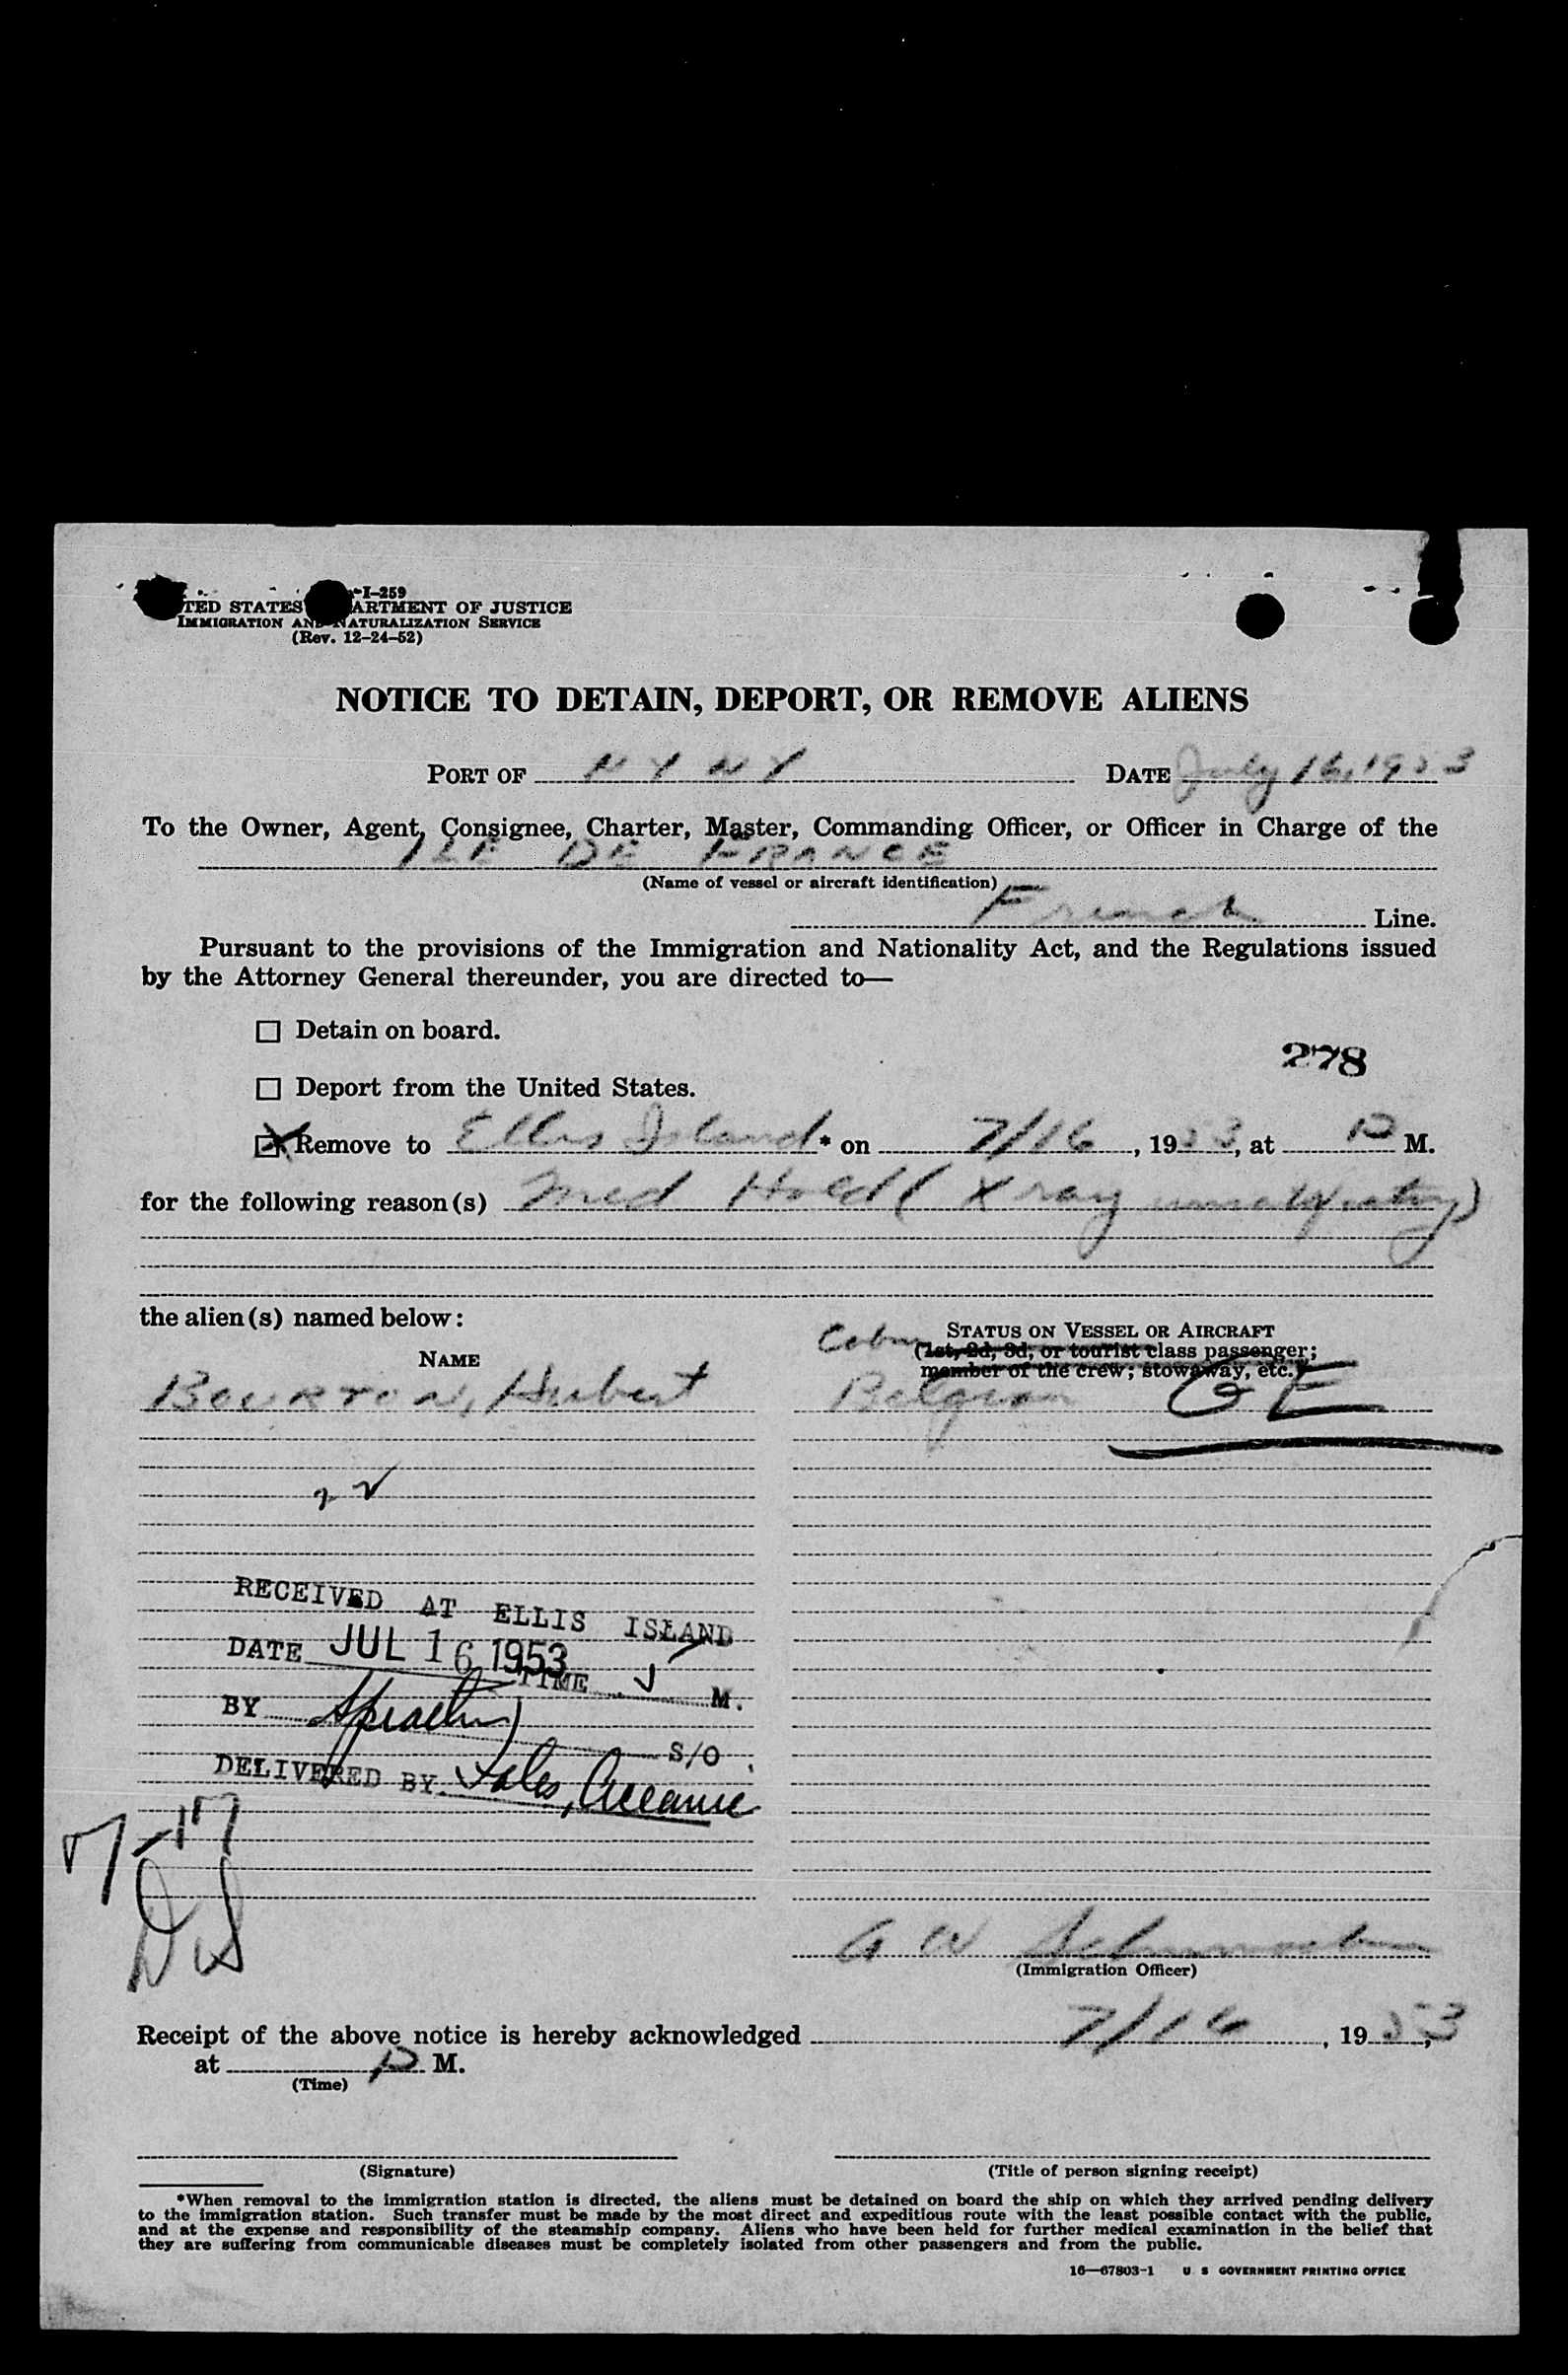 I-259
TED STATES ARTMENT OF JUSTICE
IMMIGRATION AND NATURALIZATION SERVICE
(Rev. 12-24-52)
NOTICE TO DETAIN, DEPORT, OR REMOVE ALIENS
PORT OF N Y N Y DATE July 16, 1953
To the Owner, Agent, Consignee, Charter, Master, Commanding Officer, or Officer in Charge of the
ILE DE FRANCE
(Name of vessel or aircraft identification)
French Line.
Pursuant to the provisions of the Immigration and Nationality Act, and the Regulations issued
by the Attorney General thereunder, you are directed to—
Detain on board.
278
Deport from the United States.
Remove to Ellis Island * on 7/16, 1953, at P M.
for the following reason(s) Med Hold (X ray unsatisfactory)
the alien(s) named below:
STATUS ON VESSEL OR AIRCRAFT
Cabin (1st, 2d, 3d, or tourist class passenger;
NAME member of the crew; stowaway, etc.)
BOURTON, Hubert Belgian
RECEIVED AT ELLIS ISLAND
DATE JUL 16 1953 TIME M.
BY S/O
DELIVERED BY
7-17
G W Schumacher
(Immigration Officer)
Receipt of the above notice is hereby acknowledged 7/16, 1953,
at P M.
(Time)
(Signature) (Title of person signing receipt)
*When removal to the immigration station is directed, the aliens must be detained on board the ship on which they arrived pending delivery
to the immigration station. Such transfer must be made by the most direct and expeditious route with the least possible contact with the public,
and at the expense and responsibility of the steamship company. Aliens who have been held for further medical examination in the belief that
they are suffering from communicable diseases must be completely isolated from other passengers and from the public.
16—67803-1 U S GOVERNMENT PRINTING OFFICE